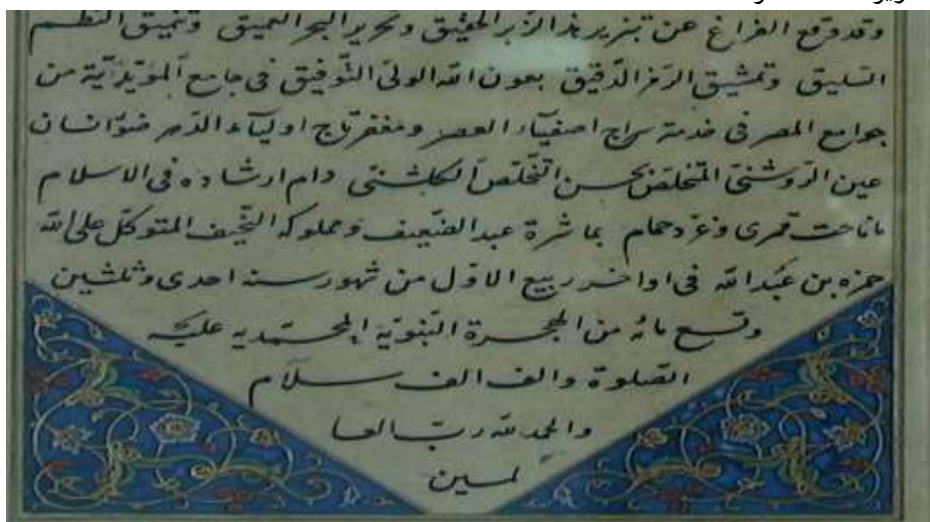 وقد وقع الفراغ عن تنزير هذا الزبر الحقيق وتحرير البحر العميق وتنميق النظم
السليق وتمشيق الرمز الدقيق بعون الله الولى التوفيق فى جامع المؤيدية من
جوامع المصر فى خدمة سراج اصفياء العصر ومفخر تاج اولياء الدهر ضوء انسان
عين الروشنى المتخلص بحسن التخلص الكلشنى دام ارشاده فى الاسلام
ماناحت قمرى وغرد حمام بماشرة عبد الضعيف ومملوكه النحيف المتوكل على الله
حمزه بن عبد الله فى اواخر ربيع الاول من شهور سنه احدى وثلثين
وتسع مائه من الهجرة النبوية المحمديه عليه
الصلوة والف الف سلام
والحمد لله رب العا
لمين